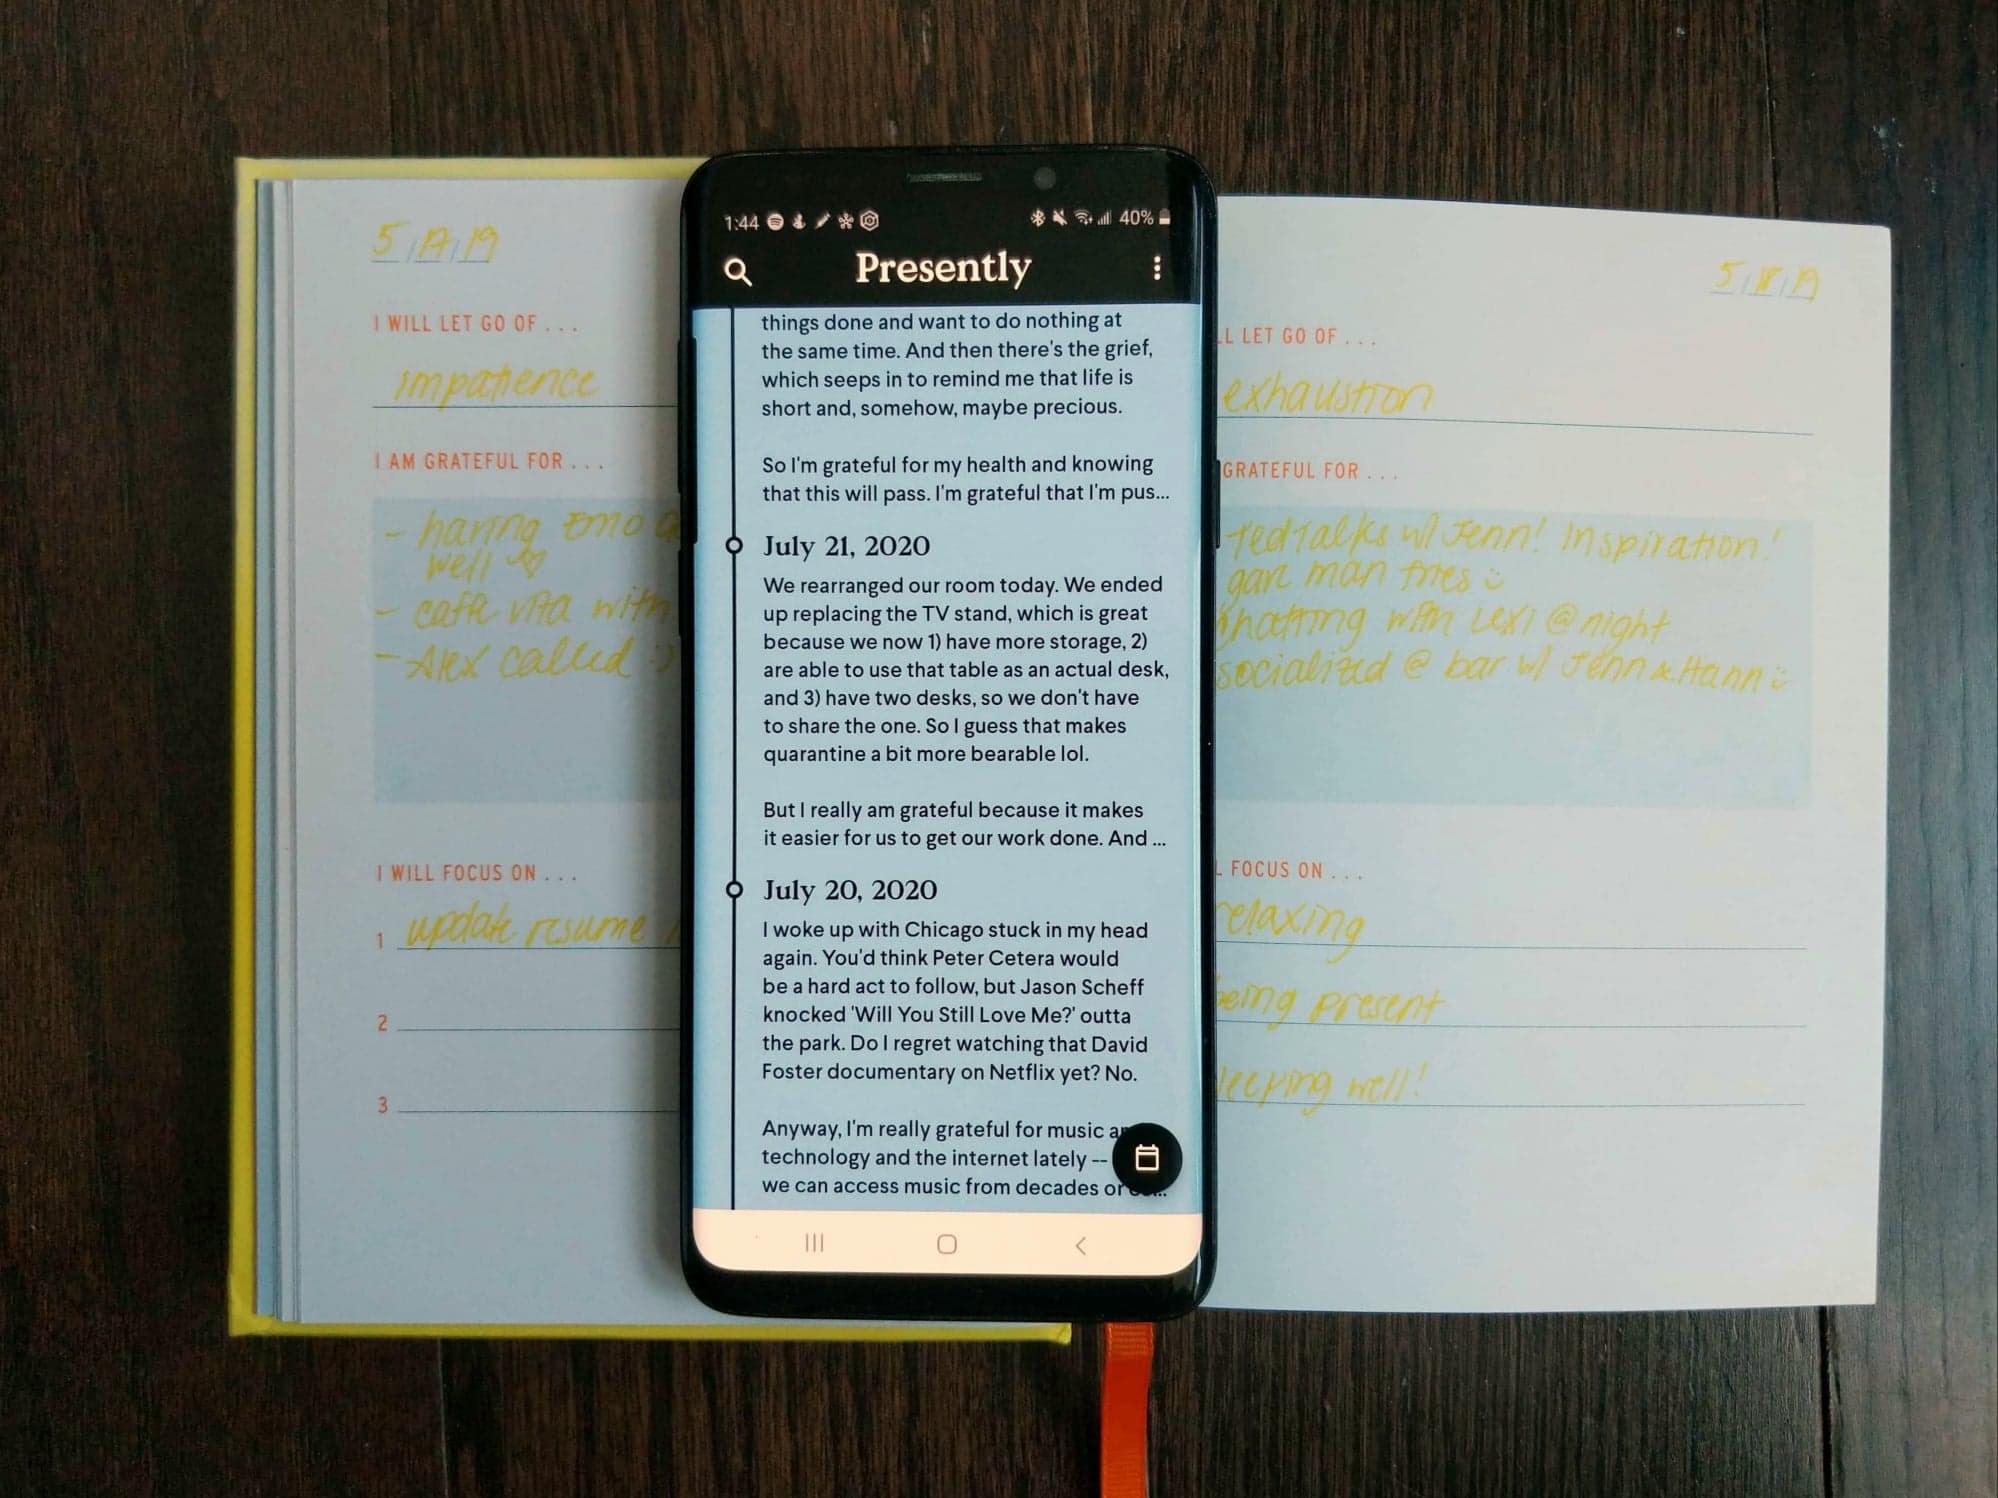 5/17/19
I WILL LET GO OF ...
impatience
I AM GRATEFUL FOR ...
- having emo
well
- caffe vita with
- Alex called :)
I WILL FOCUS ON ...
1 update resume
2
3
1:44 40%
Presently
things done and want to do nothing at
the same time. And then there's the grief,
which seeps in to remind me that life is
short and, somehow, maybe precious.
So I'm grateful for my health and knowing
that this will pass. I'm grateful that I'm pus...
July 21, 2020
We rearranged our room today. We ended
up replacing the TV stand, which is great
because we now 1) have more storage, 2)
are able to use that table as an actual desk,
and 3) have two desks, so we don't have
to share the one. So I guess that makes
quarantine a bit more bearable lol.
But I really am grateful because it makes
it easier for us to get our work done. And ...
July 20, 2020
I woke up with Chicago stuck in my head
again. You'd think Peter Cetera would
be a hard act to follow, but Jason Scheff
knocked 'Will You Still Love Me?' outta
the park. Do I regret watching that David
Foster documentary on Netflix yet? No.
Anyway, I'm really grateful for music
technology and the internet lately --
we can access music from decades or
5/18/19
LET GO OF ...
exhaustion
GRATEFUL FOR ...
TedTalks w/ Jenn! Inspiration!
man fries
with Lexi @ night
socialized @ bar w/ Jenn & Hann
FOCUS ON ...
relaxing
being present
leeping well!